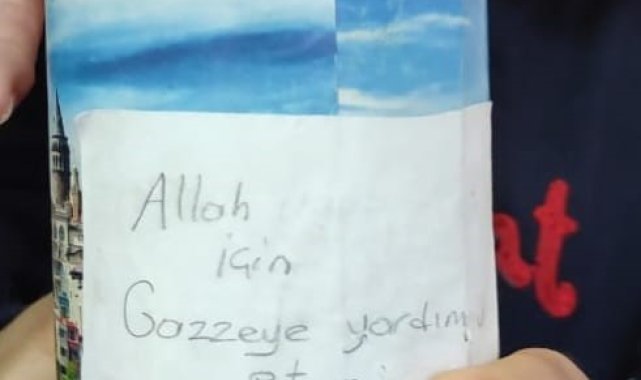 Allah
için
Gazzeye yardım